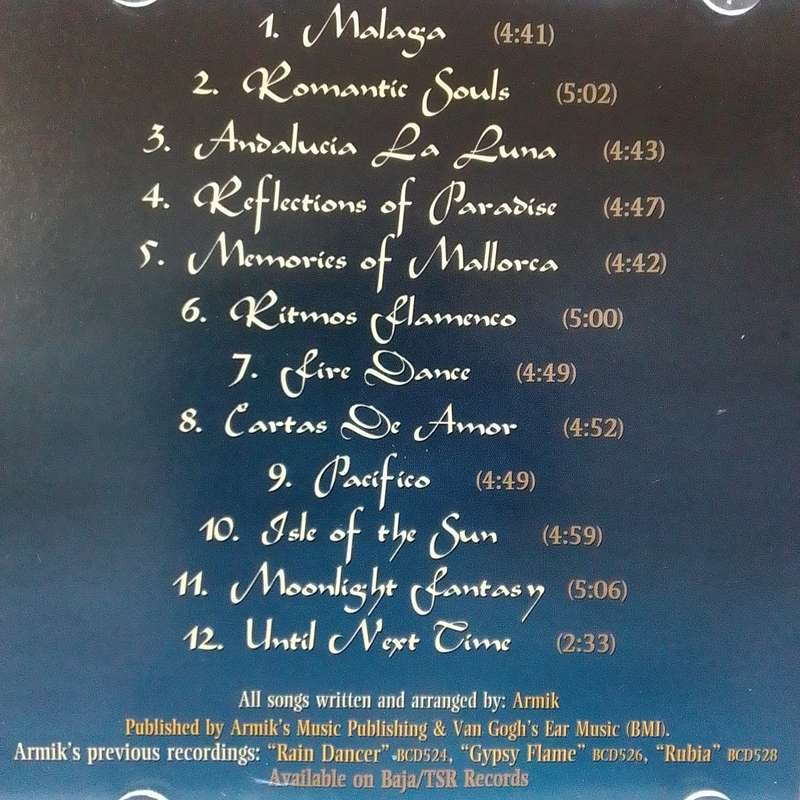 1. Malaga (4:41)
2. Romantic Souls (5:02)
3. Andalucia La Luna (4:43)
4. Reflections of Paradise (4:47)
5. Memories of Mallorca (4:42)
6. Ritmos Flamenco (5:00)
7. Fire Dance (4:49)
8. Cartas De Amor (4:52)
9. Pacifico (4:49)
10. Isle of the Sun (4:59)
11. Moonlight Fantasy (5:06)
12. Until Next Time (2:33)
All songs written and arranged by: Armik
Published by Armik's Music Publishing & Van Gogh's Ear Music (BMI).
Armik's previous recordings: "Rain Dancer" BCD524, "Gypsy Flame" BCD526, "Rubia" BCD528
Available on Baja/TSR Records